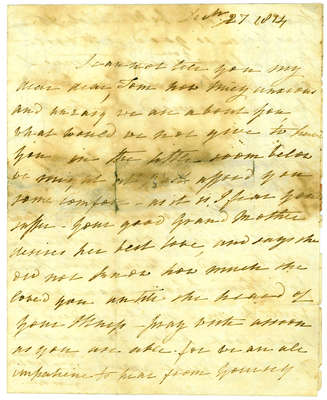 27 1824
I can not tell you my
dear dear Tom how very anxious
and uneasy we are about you
what would we not give to have
you in the little room below
we might afford you
some comfort - as it is, I fear you
suffer - your good Grand Mother
desires her best love, and says she
did not know how much she
loved you untill she heard of
your illness - pray write as soon
as you are able - for we are all
impatience to hear from